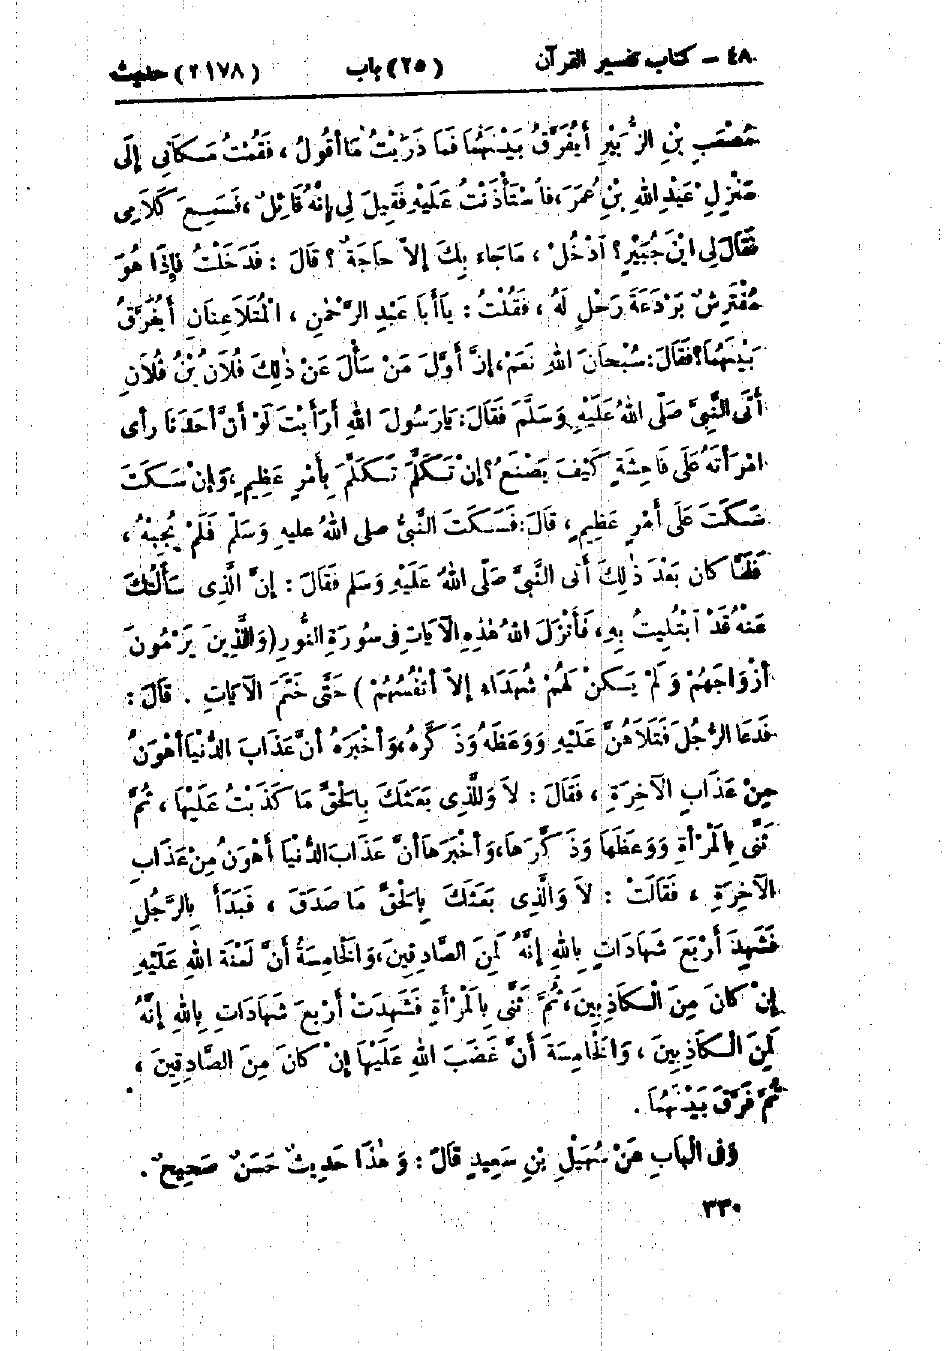 ٤٨ – كتاب تفسير القرآن (٢٥) باب (٣١٧٨) حديث
مُصْعَبِ بْنِ الزُّبَيْرِ أَيُفَرَّقُ بَيْنَهُمَا فَمَا دَرَيْتُ مَا أَقُولُ ، فَقُمْتُ مَكَانِي إِلَى
مَنْزِلِ عَبْدِ اللهِ بْنِ عُمَرَ، فَاسْتَأْذَنْتُ عَلَيْهِ فَقِيلَ لِي إِنَّهُ قَائِلٌ ، فَسَمِعَ كَلَامِي
فَقَالَ لِي ابْنَ جُبَيْرٍ ؟ أَدْخُلْ ، مَاجَاءَ بِكَ إِلاَّ حَاجَةٌ ؟ قَالَ : فَدَخَلْتُ فَإِذَا هُوَ
مُفْتَرِشٌ بَرْدَعَةَ رَحْلٍ لَهُ ، فَقُلْتُ : يَاأَبَا عَبْدِ الرَّحْمٰنِ ، الْمُتَلاَعِنَانِ أَيُفَرَّقُ
بَيْنَهُمَا؟ فَقَالَ: سُبْحَانَ اللهِ نَعَمْ، إِنَّ أَوَّلَ مَنْ سَأَلَ عَنْ ذٰلِكَ فُلَانُ بْنُ فُلَانٍ
أَتَى النَّبِيَّ صَلَّى اللهُ عَلَيْهِ وَسَلَّمَ فَقَالَ: يَارَسُولَ اللهِ أَرَأَيْتَ لَوْ أَنَّ أَحَدَنَا رأى
امْرَأَتَهُ عَلَى فَاحِشَةٍ كَيْفَ يَصْنَعُ؟ إِنْ تَكَلَّمَ تَكَلَّمَ بِأَمْرٍ عَظِيمٍ، وَإِنْ سَكَتَ
سَكَتَ عَلَى أَمْرٍ عَظِيمٍ، قَالَ: فَسَكَتَ النَّبِيُّ صلى اللهُ عليهِ وَسَلَّمَ فَلَمْ يُجِبْهُ ،
فَلَمَّا كان بَعْدَ ذٰلِكَ أتى النَّبِيَّ صَلَّى اللهُ عَلَيْهِ وَسَلم فَقَالَ : إِنَّ الَّذِى سَأَلْتُكَ
عَنْهُ قَدْ ابْتُلِيتُ بِهِ، فَأَنْزَلَ اللهُ هٰذِهِ الْآيَاتِ فِى سُورَةِ النُّورِ (وَالَّذِينَ يَرْمُونَ
أَزْوَاجَهُمْ وَلَمْ يَكُنْ لَهُمْ شُهَدَاءُ إِلاَّ أَنْفُسُهُمْ ) حَتَّى خَتَمَ الْآيَاتِ . قَالَ :
فَدَعَا الرَّجُلَ فَتَلاَهُنَّ عَلَيْهِ وَوَعَظَهُ وَذَكَّرَهُ، وَأَخْبَرَهُ أَنَّ عَذَابَ الدُّنْيَا أَهْوَنُ
مِنْ عَذَابِ الْآخِرَةِ ، فَقَالَ : لاَ وَالَّذِى بَعَثَكَ بِالْحَقِّ مَا كَذَبْتُ عَلَيْهَا ، ثُمَّ
ثَنَّى بِالْمَرْأَةِ وَوَعَظَهَا وَذَكَّرَهَا، وَأَخْبَرَهَا أَنَّ عَذَابَ الدُّنْيَا أَهْوَنُ مِنْ عَذَابِ
الْآخِرَةِ ، فَقَالَتْ : لاَ وَالَّذِى بَعَثَكَ بِالْحَقِّ مَا صَدَقَ ، فَبَدَأَ بِالرَّجُلِ
فَشَهِدَ أَرْبَعَ شَهَادَاتٍ بِاللهِ إِنَّهُ لَمِنَ الصَّادِقِينَ، وَالْخَامِسَةُ أَنَّ لَعْنَةَ اللهِ عَلَيْهِ
إِنْ كَانَ مِنَ الْكَاذِبِينَ، ثُمَّ ثَنَّى بِالْمَرْأَةِ فَشَهِدَتْ أَرْبَعَ شَهَادَاتٍ بِاللهِ إِنَّهُ
لَمِنَ الْكَاذِبِينَ ، وَالْخَامِسَةَ أَنَّ غَضَبَ اللهِ عَلَيْهَا إِنْ كَانَ مِنَ الصَّادِقِينَ ،
ثُمَّ فَرَّقَ بَيْنَهُمَا .
وَفِى الْبَابِ عَنْ سُهَيْلِ بْنِ سَعِيدٍ قَالَ : وَهٰذَا حَدِيثٌ حَسَنٌ صَحِيحٌ .
٣٣٠